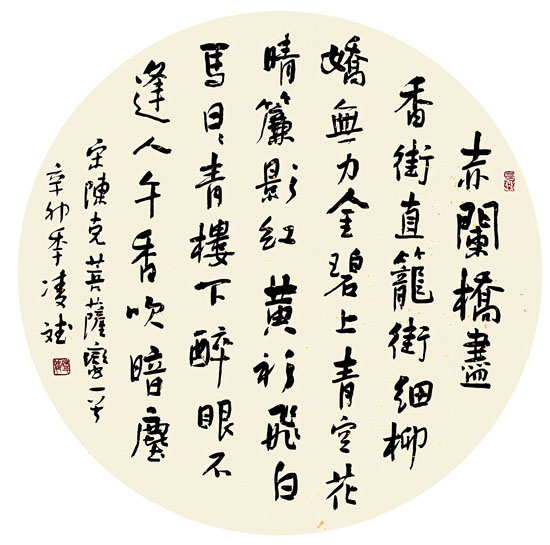 赤闌橋盡
香街直籠街細柳
嬌無力金碧上青空花
晴簾影紅黃衫飛白
馬日〻青樓下醉眼不
逢人午香吹暗塵
宋陳克菩薩蠻一首
辛卯秊凌